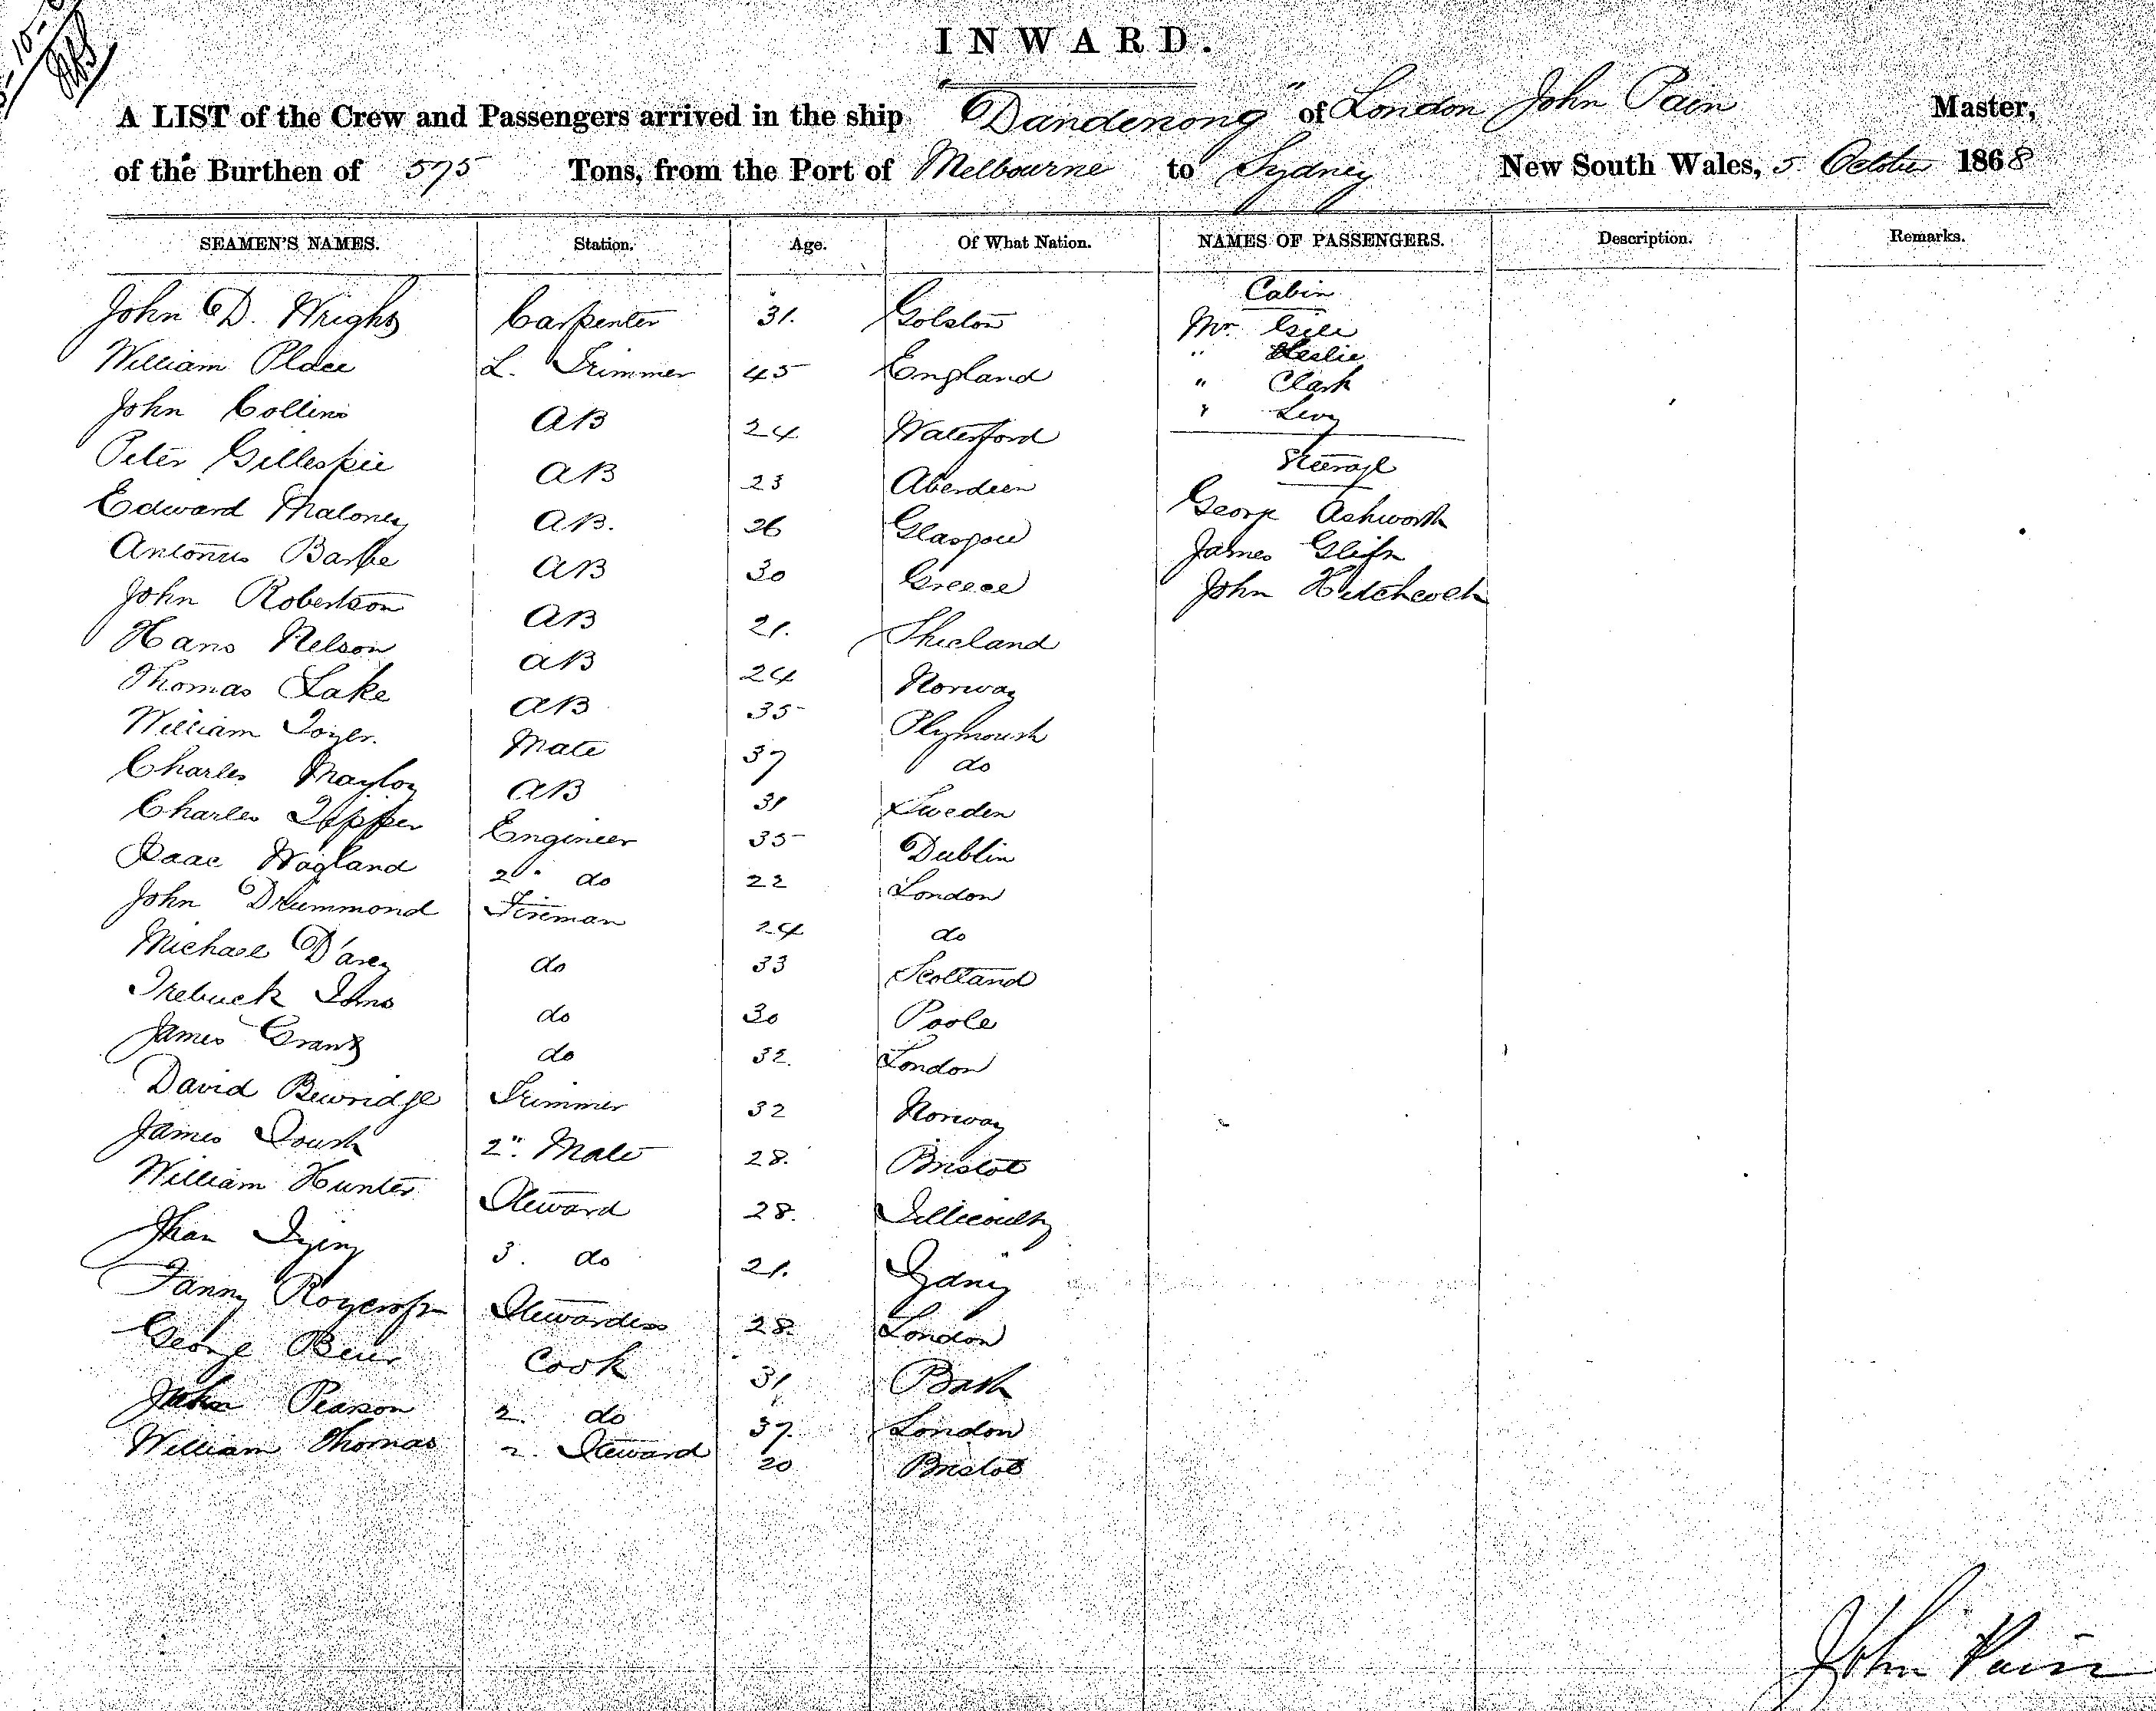 INWARD.
A LIST of the Crew and Passengers arrived in the ship "Dandenong" of London John Pain Master,
of the Burthen of 575 Tons, from the Port of Melbourne to Sydney New South Wales, 5 October 1868
SEAMEN'S NAMES. Station. Age. Of What Nation. NAMES OF PASSENGERS. Description. Remarks.
Cabin
John D. Wright Carpenter 31. Golston Mr. Gill
William Place L. Trimmer 45 England " Leslie
" Clark
John Collins AB 24 Waterford " Levy
Peter Gilleskie AB 23 Aberdeen Steerage
Edward Maloney AB. 26 Glasgow George Ashworth
Antonus Barbe AB 30 Greece James
John Robertson AB 21. Shieland John Hitchcock
Hans Nelson AB 24 Norway
Thomas Lake AB 35 Plymouth
William Mate 37 do
Charles AB 31 Sweden
Charles Engineer 35 Dublin
Isaac Wagland 2" do 22 London
John Drummond Fireman 24 do
Michael D'arcy do 33 Scotland
Trebuck do 30 Poole
James Grant do 32. London
David Bewridge Trimmer 32 Norway
James 2". Mate 28. Bristol
William Hunter Steward 28. Tillicoultry
3. do 21. Sydney
Fanny Roycroft Stewardess 28. London
George Cook 31 Bath
John Pearson 2. do 37. London
William Thomas 2. Steward 20 Bristol
John Pain